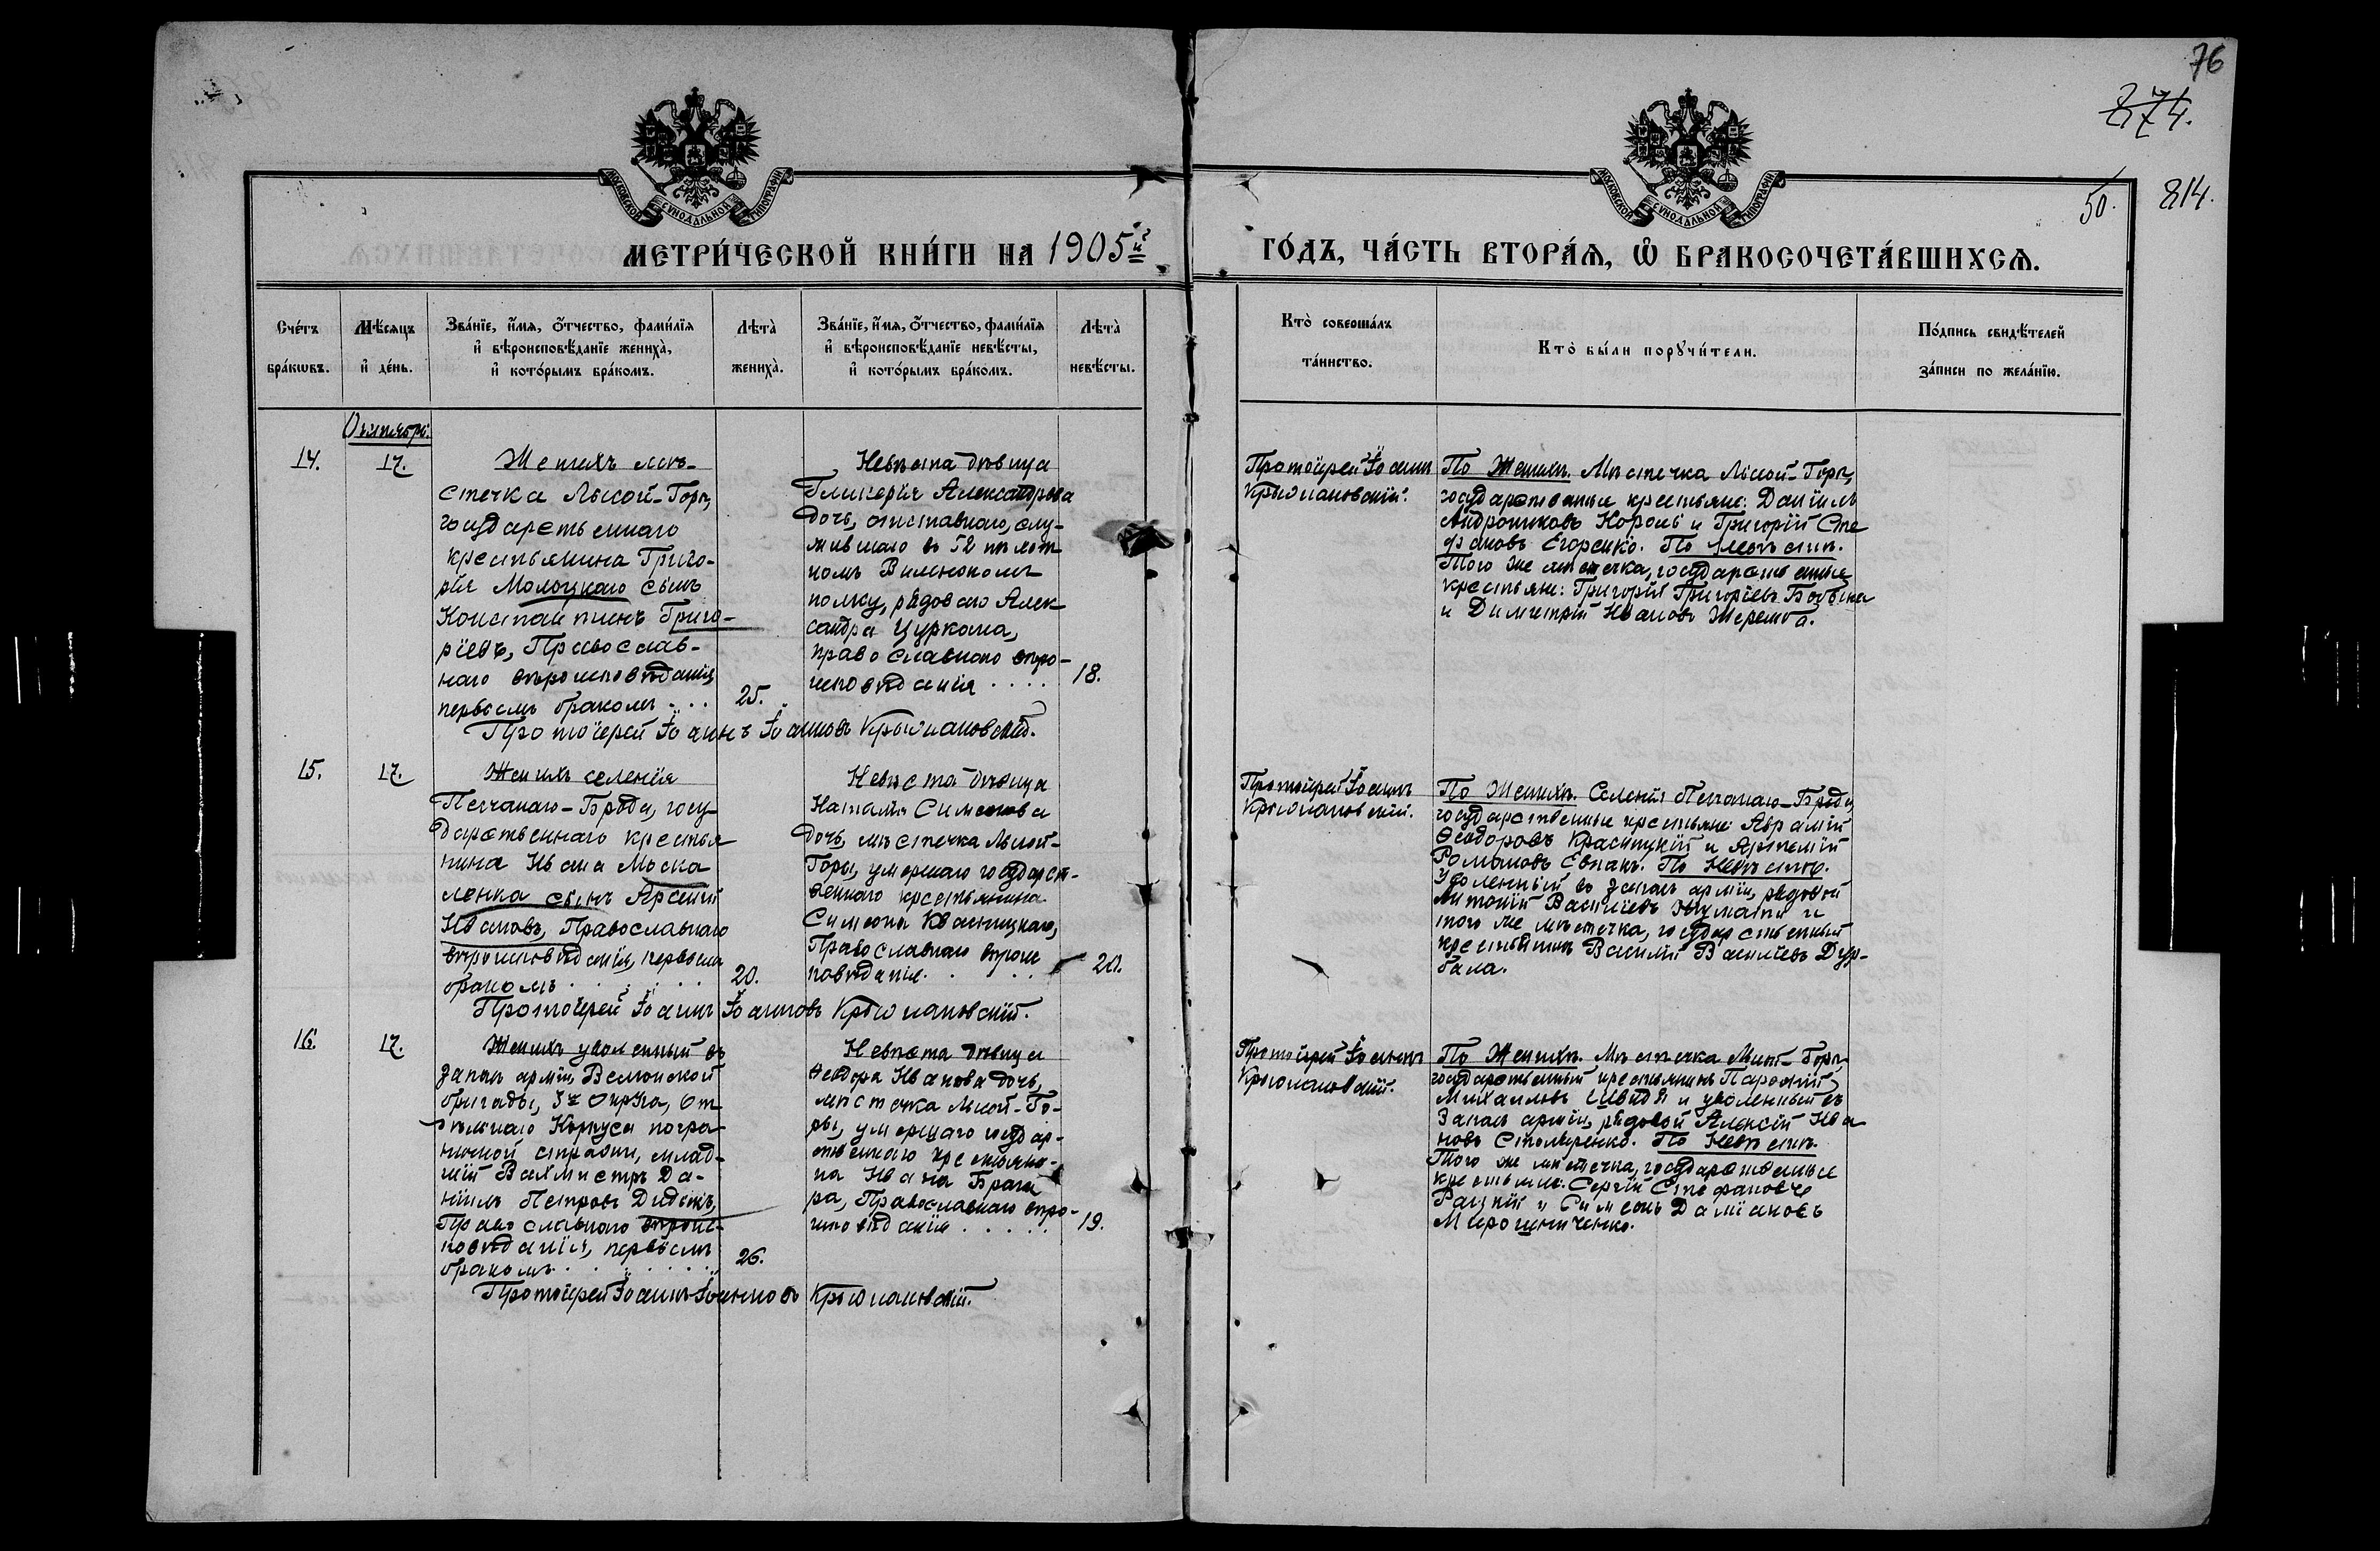 76
274.
814.
50.
МОСКОВСКОЙ СѴНОДАЛЬНОЙ ТИПОГРАФІИ
МОСКОВСКОЙ СѴНОДАЛЬНОЙ ТИПОГРАФІИ
МЕТРИ́ЧЕСКОЙ КНИ́ГИ НА 1905й
ГО́ДЪ, ЧА́СТЬ ВТОРА́Ѧ, Ѡ҆ БРАКОСОЧЕТА́ВШИХСѦ.
Сче́тъ бра́кѡвъ.
Мѣ́сяцъ и҆ де́нь.
Зва́нїе, и҆́мя, ѻ҆́тчество, фами́лїя
и҆ вѣроисповѣ́данїе жениха̀,
и҆ кото́рымъ бра́комъ.
Лѣта̀ жениха̀.
Зва́нїе, и҆́мя, ѻ҆́тчество, фами́лїя
и҆ вѣроисповѣ́данїе невѣ́сты,
и҆ кото́рымъ бра́комъ.
Лѣта̀ невѣ́сты.
Кто̀ соверша́лъ та́инство.
Кто̀ бы́ли порꙋчи́тели.
По́дпись свидѣ́телей
за́писи по жела́нїю.
Октября.
14.
17.
Женихъ мѣ-
стечка Лысой-Горы,
государственнаго
крестьянина Григо-
рія Молоцкаго сынъ
Константинъ Григо-
ріевъ, Православ-
наго вѣроисповѣданія,
первымъ бракомъ . . .
25.
Невѣста дѣвица
Гликерія Александрова
дочь, отставнаго, слу-
жившаго въ 52 пѣхот
номъ Виленскомъ
полку, рядоваго Алек
сандра Цуркана,
православнаго вѣро-
исповѣданія . . . .
18.
Протоіерей Іоаннъ Іоанновъ Крыжановскій.
Протоіерей Іоаннъ
Крыжановскій.
По Женихѣ. Мѣстечка Лысой-Горы,
государственные крестьяне: Даніилъ
Андрониковъ Король и Григорій Сте
фановъ Егоренко. По Невѣстѣ.
Того же мѣстечка, государственные
крестьяне: Григорій Григоріевъ
и Димитрій Ивановъ
15.
17.
Женихъ селенія
Песчанаго-Брода, госу-
дарственнаго крестья
нина Ивана Моска
ленка сынъ Арсеній
Ивановъ, Православнаго
вѣроисповѣданія, первымъ
бракомъ . . . . . .
20.
Невѣста дѣвица
Наталія Симеонова
дочь, мѣстечка Лысой-
Горы, умершаго государст-
веннаго крестьянина
Симеона Квасницкаго,
Православнаго вѣроис
повѣданія . . . .
20.
Протоіерей Іоаннъ Іоанновъ Крыжановскій.
Протоіерей Іоаннъ
Крыжановскій.
По Женихѣ. Селенія Песчанаго-Брода,
государственные крестьяне: Аврамій
Ѳеодоровъ Красицкій и Артемій
Романовъ По Невѣстѣ.
Уволенный въ запасъ арміи, рядовой
Антоній Василіевъ и
того же мѣстечка, государственный
крестьянинъ Василій Василіевъ Дур-
бала.
16.
17.
Женихъ уволенный въ
запасъ арміи,
бригады, 3го Округа, От
дѣльнаго Корпуса погра-
ничной стражи, млад-
шій Вахмистръ Да-
ніилъ Петровъ Дидыкъ,
Православнаго вѣроис-
повѣданія, первымъ
бракомъ . . . . . .
26.
Невѣста дѣвица
Ѳеодора Иванова дочь,
мѣстечка Лысой-Го-
ры, умершаго государ-
ственнаго крестьяни-
на Ивана
Православнаго вѣро-
исповѣданія . . . . .
19.
Протоіерей Іоаннъ Іоанновъ Крыжановскій.
Протоіерей Іоаннъ
Крыжановскій.
По Женихѣ. Мѣстечка Лысой-Горы,
государственный крестьянинъ
Михаиловъ и уволенный въ
запасъ арміи, рядовой Алексій Ива
новъ Столяренко. По Невѣстѣ.
Того же мѣстечка, государственные
крестьяне: Сергій Стефановъ
Рацкій и Симеонъ Даміановъ
Мирошниченко.